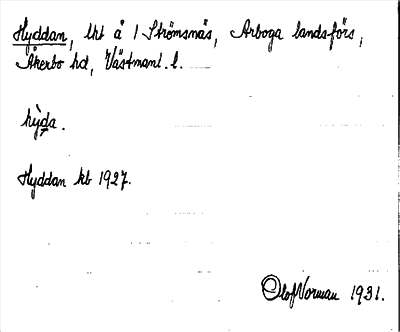 Hyddan, lht å 1 Strömsnäs, Arboga landsförs,
Åkerbo hd, Västmanl. l.
hỳda.
Hyddan kb 1927.
Olof Norman 1931.